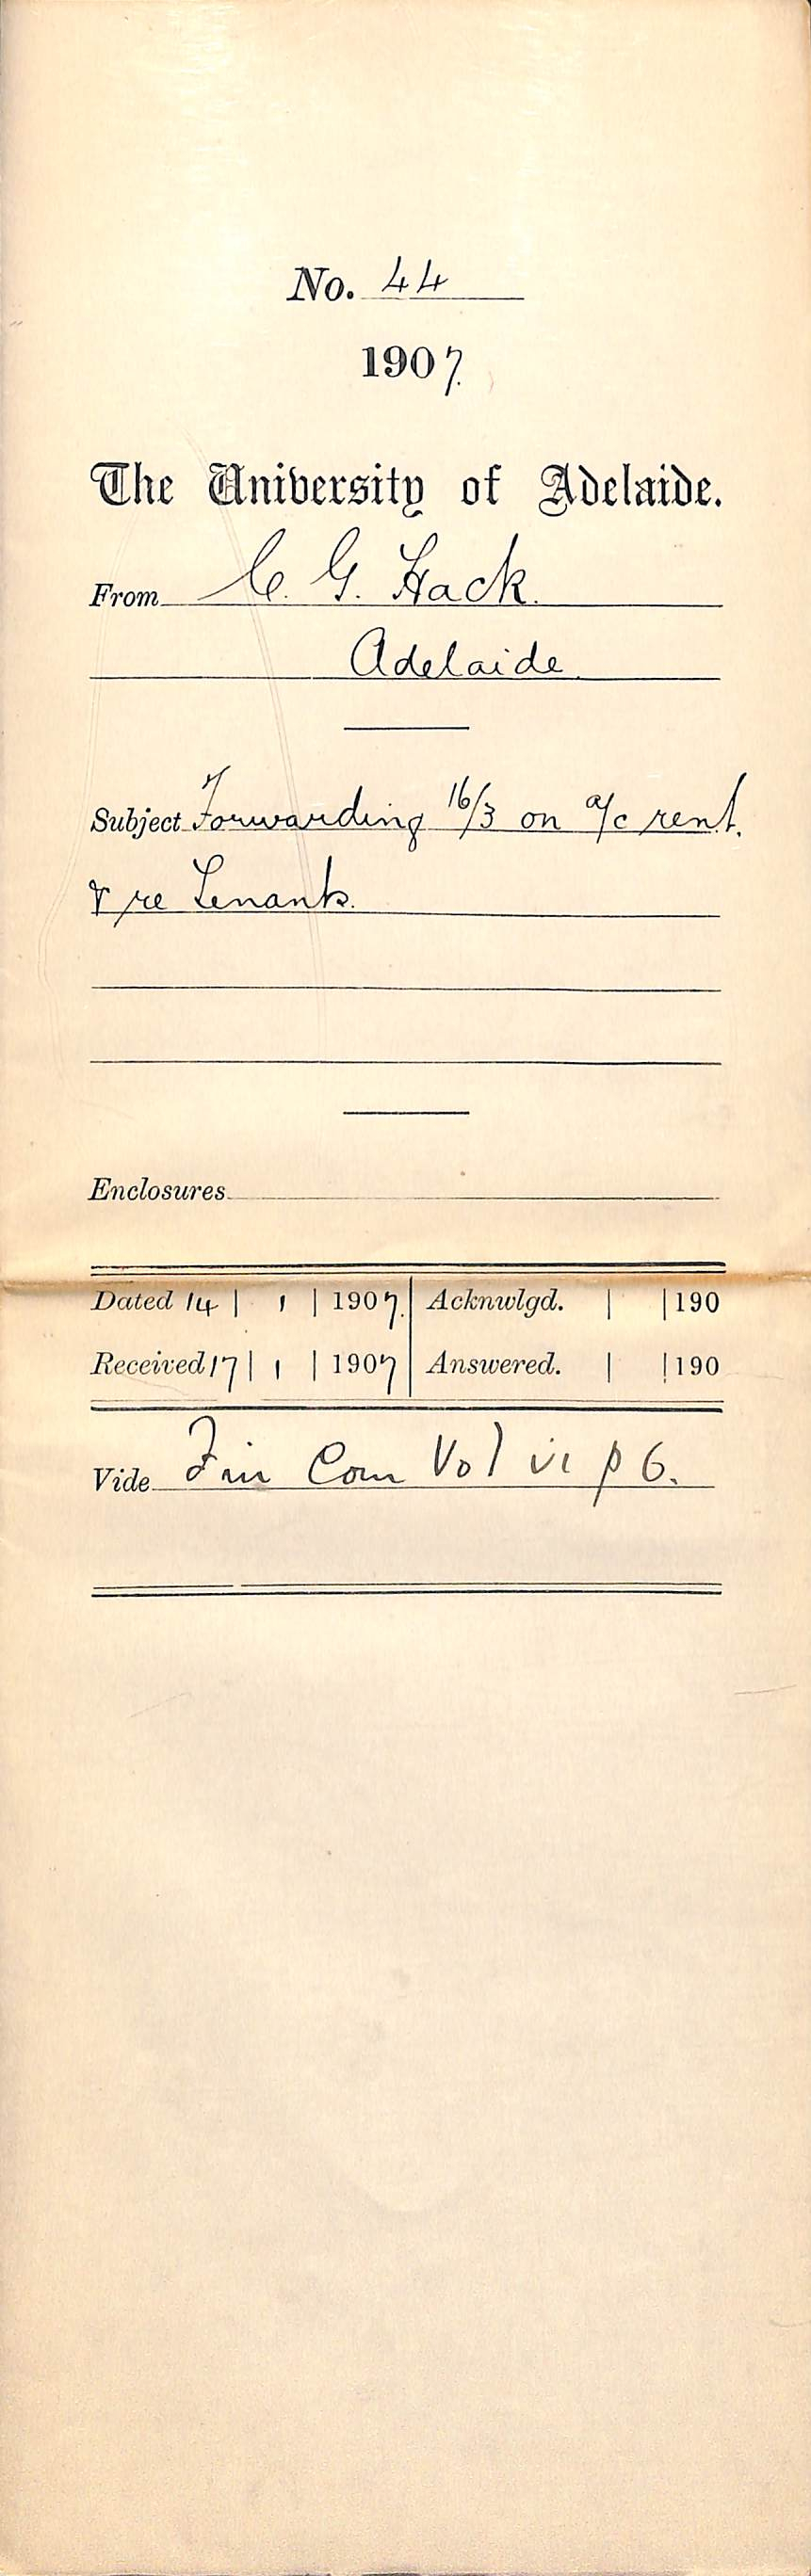 No. 44
1907.
The University of Adelaide.
From C. G. Hack.
Adelaide.
Subject Forwarding 16/3 on a/c rent.
& re Tenants.
Enclosures
Dated 14 | 1 | 1907. Acknwlgd. | | 190
Received 17 | 1 | 1907 Answered. | | 190
Vide Fin Com Vol vi p 6.